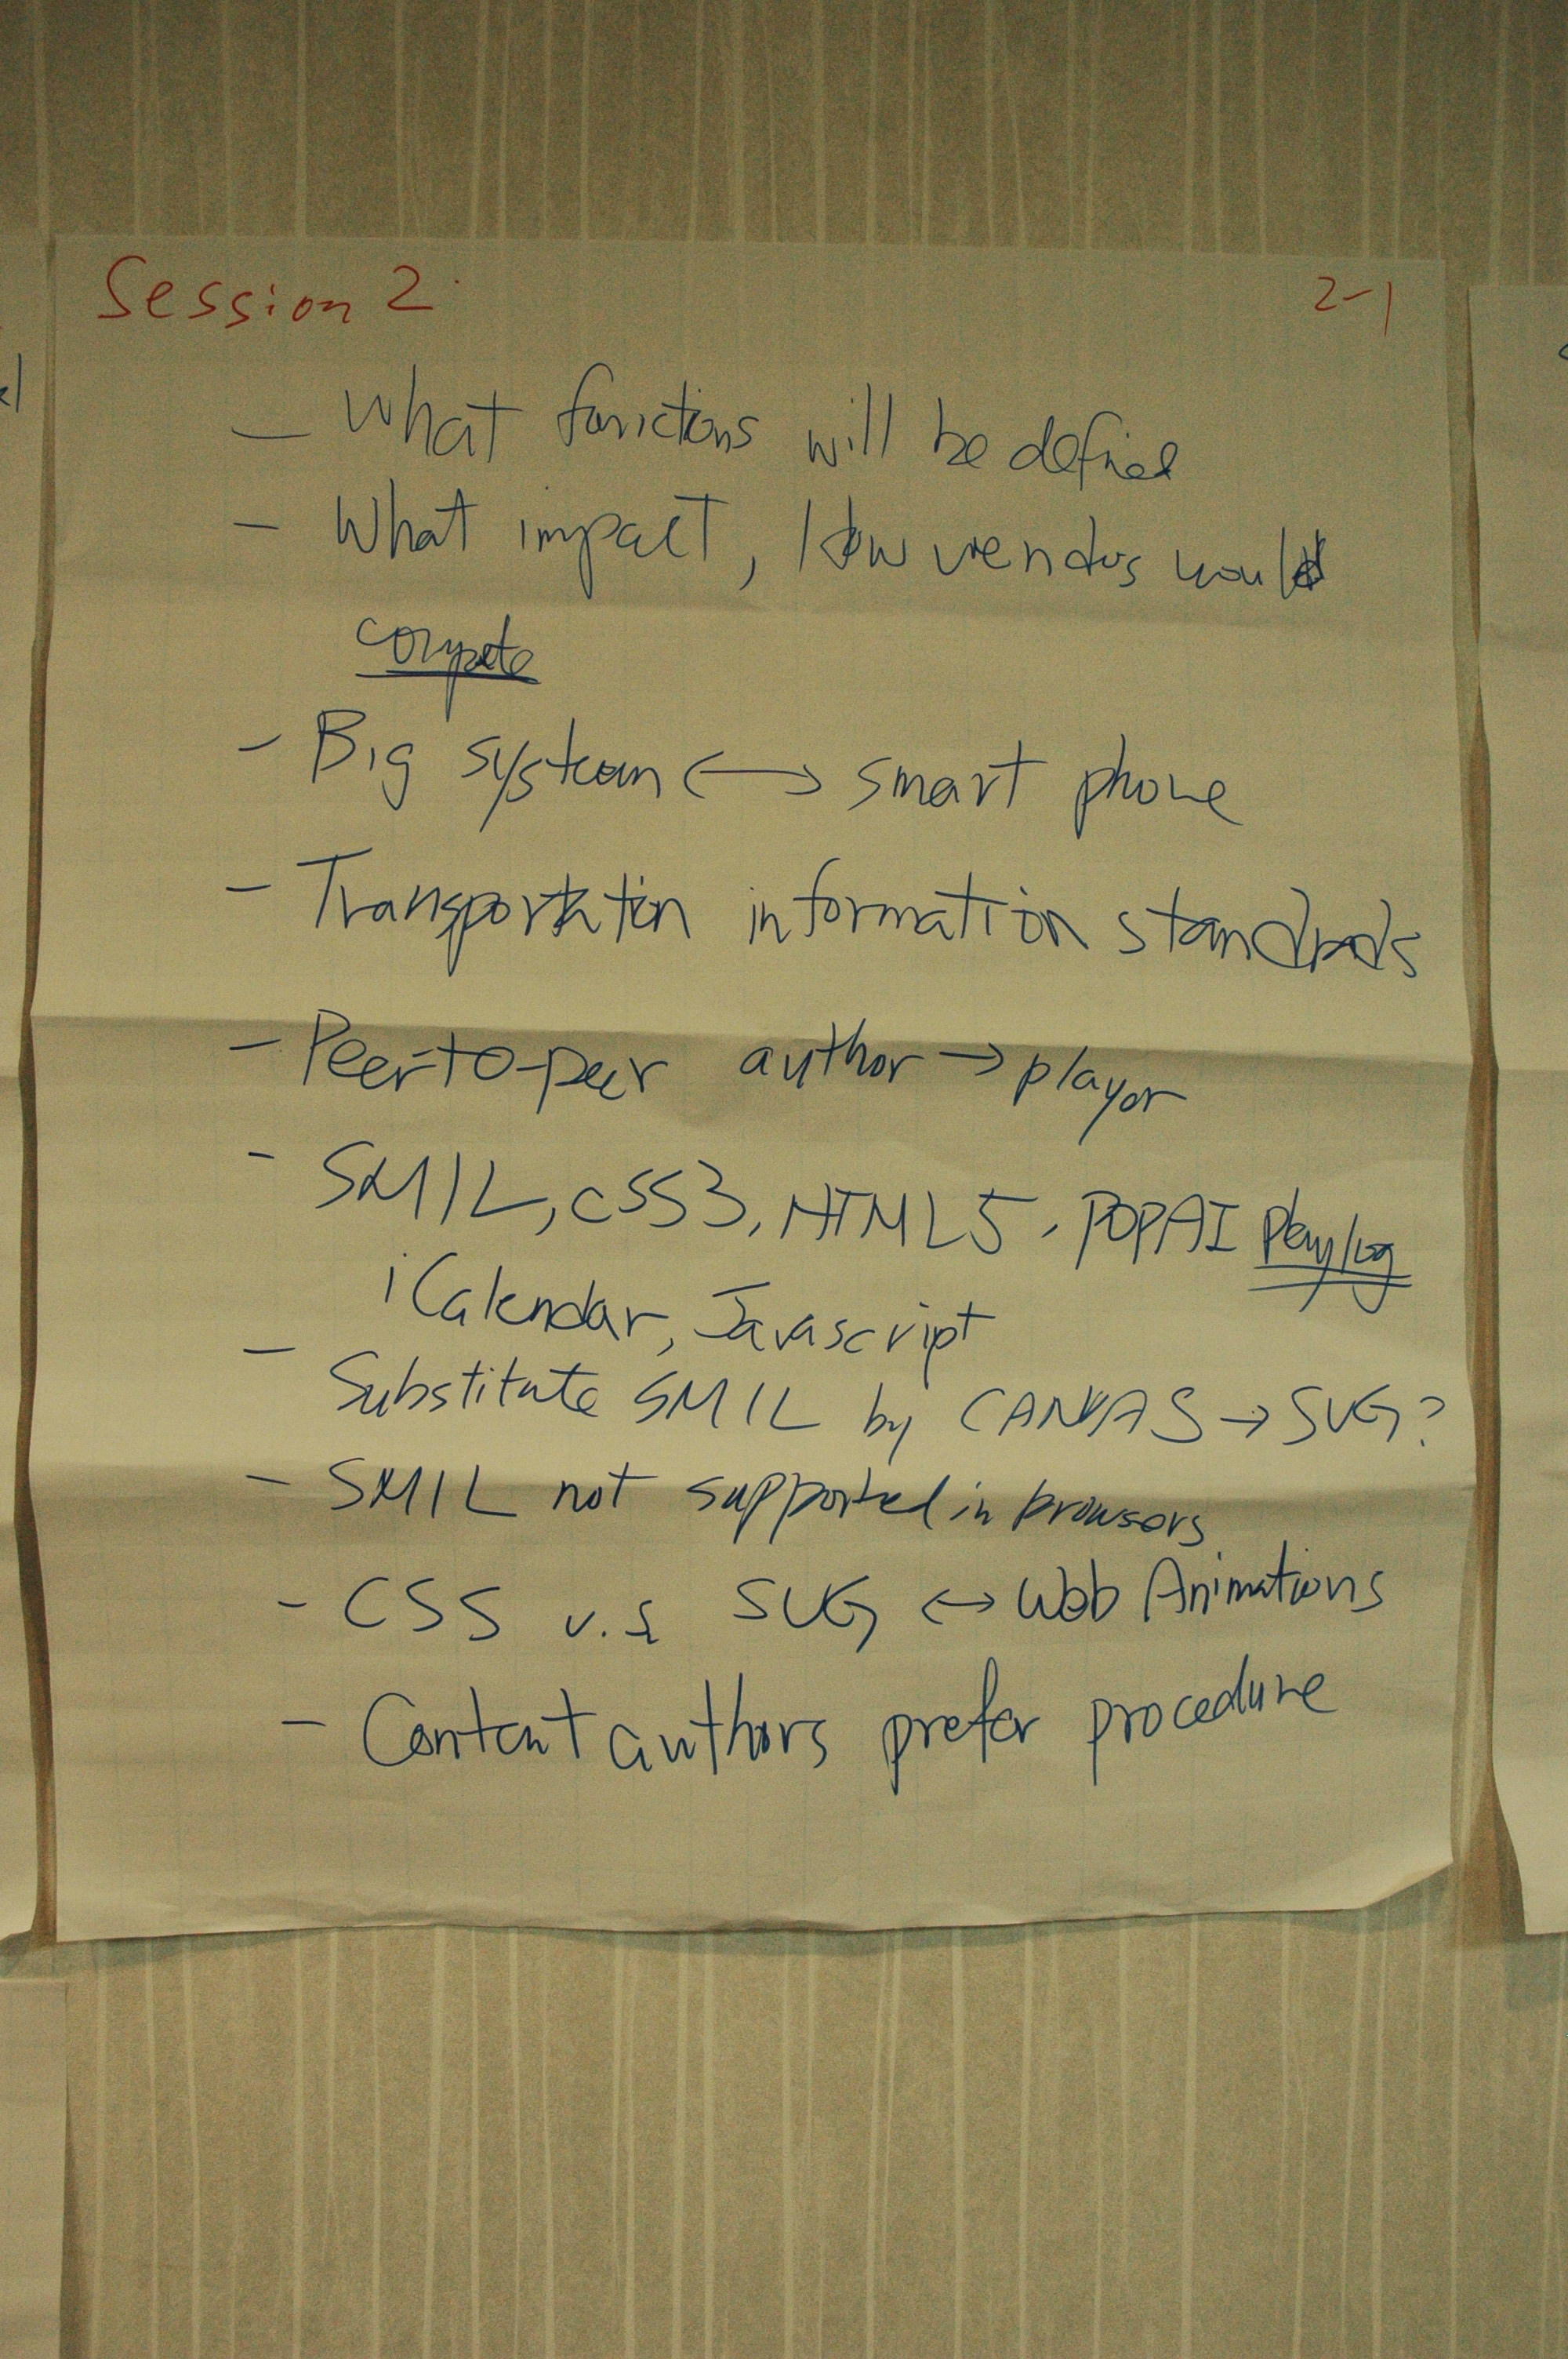 Session 2 2-1
- What functions will be defined
- What impact, How vendors would
compete
- Big system <-> smart phone
- Transportation information standards
- Peer-to-peer author -> player
- SMIL, CSS3, HTML5, POPAI playlog
iCalendar, Javascript
- Substitute SMIL by CANVAS -> SVG?
- SMIL not supported in browsers
- CSS v.s SVG <-> Web Animations
- Content authors prefer procedure